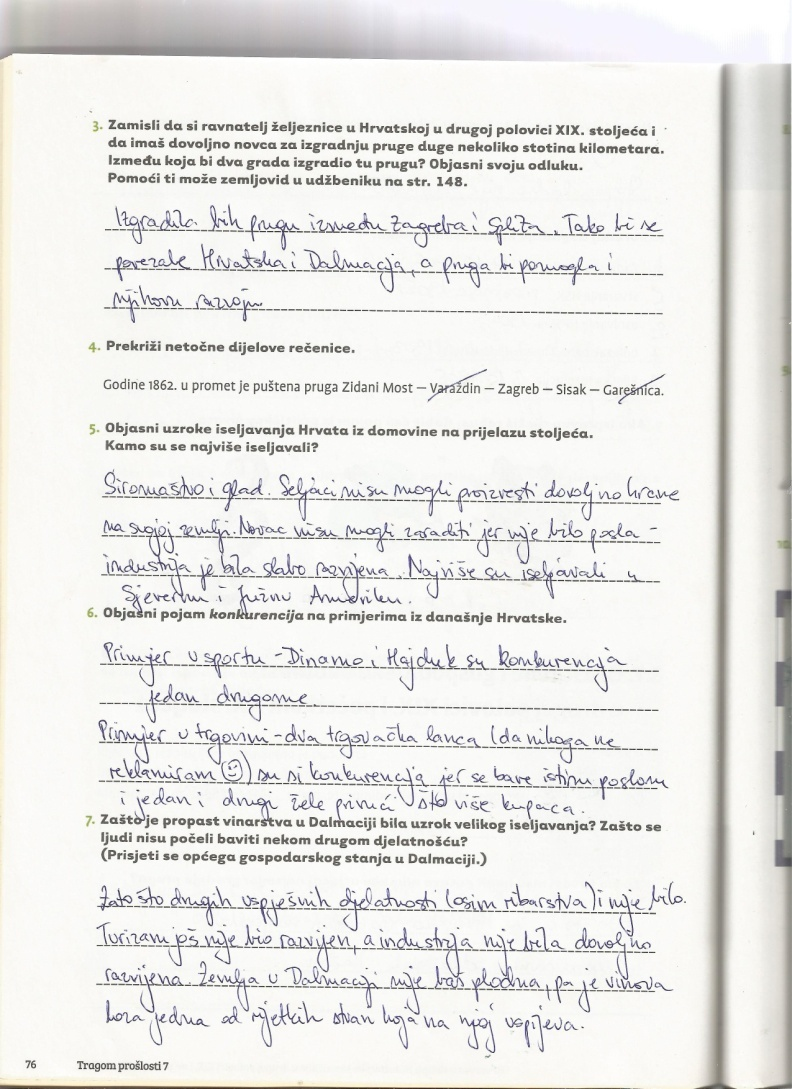 3. Zamisli da si ravnatelj željeznice u Hrvatskoj u drugoj polovici XIX. stoljeća i
da imaš dovoljno novca za izgradnju pruge duge nekoliko stotina kilometara.
Između koja bi dva grada izgradio tu prugu? Objasni svoju odluku.
Pomoći ti može zemljovid u udžbeniku na str. 148.
Izgradila bih prugu između Zagreba i Splita. Tako bi se
povezale Hrvatska i Dalmacija, a pruga bi pomogla i
njihovu razvoju.
4. Prekriži netočne dijelove rečenice.
Godine 1862. u promet je puštena pruga Zidani Most – Varaždin – Zagreb – Sisak – Garešnica.
5. Objasni uzroke iseljavanja Hrvata iz domovine na prijelazu stoljeća.
Kamo su se najviše iseljavali?
Siromaštvo i glad. Seljaci nisu mogli proizvesti dovoljno hrane
na svojoj zemlji. Novac nisu mogli zaraditi jer nije bilo posla -
industrija je bila slabo razvijena. Najviše su iseljavali u
Sjevernu i Južnu Ameriku.
6. Objasni pojam konkurencija na primjerima iz današnje Hrvatske.
Primjer u sportu - Dinamo i Hajduk su konkurencija
jedan drugome.
Primjer u trgovini - dva trgovačka lanca (da nikoga ne
reklamiram ☺) su si konkurencija jer se bave istim poslom
i jedan i drugi žele privući što više kupaca.
7. Zašto je propast vinarstva u Dalmaciji bila uzrok velikog iseljavanja? Zašto se
ljudi nisu počeli baviti nekom drugom djelatnošću?
(Prisjeti se općega gospodarskog stanja u Dalmaciji.)
Zato što drugih uspješnih djelatnosti (osim ribarstva) i nije bilo.
Turizam još nije bio razvijen, a industrija nije bila dovoljno
razvijena. Zemlja u Dalmaciji nije baš plodna, pa je vinova
loza jedna od rijetkih stvari koja na njoj uspijeva.
76 Tragom prošlosti 7